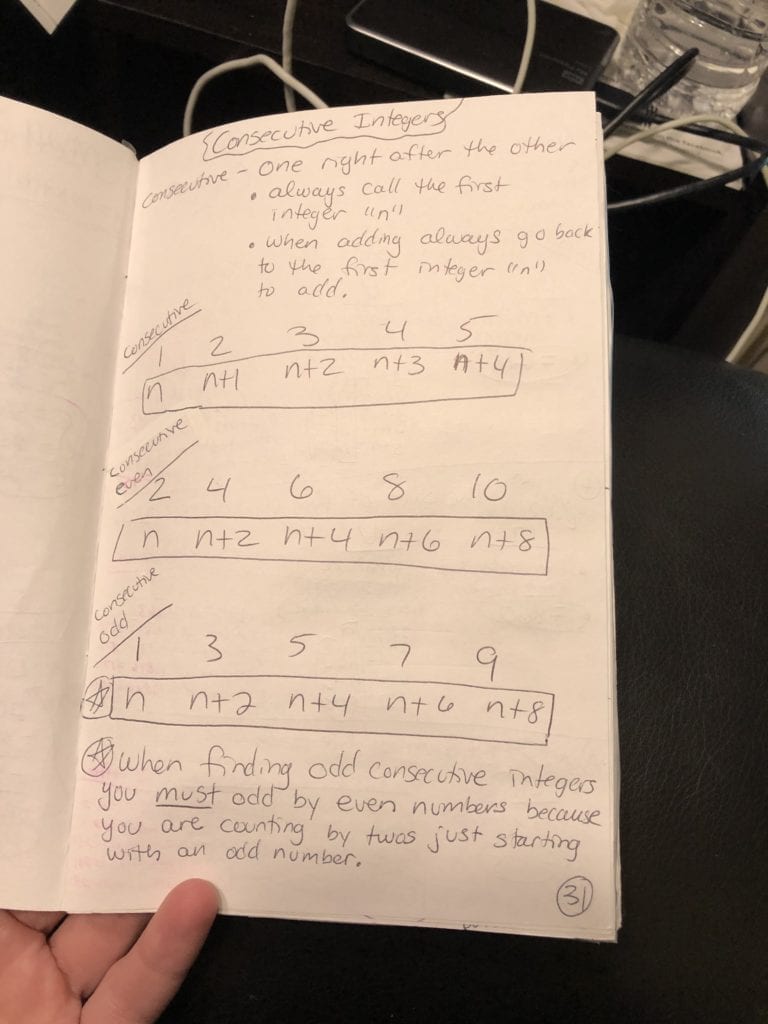 Consecutive Integers
Consecutive - One right after the other
• always call the first
integer "n"
• when adding always go back
to the first integer "n"
to add.
consecutive
1 2 3 4 5
n n+1 n+2 n+3 n+4
consecutive
even
2 4 6 8 10
n n+2 n+4 n+6 n+8
consecutive
odd
1 3 5 7 9
n n+2 n+4 n+6 n+8
When finding odd consecutive integers
you must odd by even numbers because
you are counting by twos just starting
with an odd number.
31